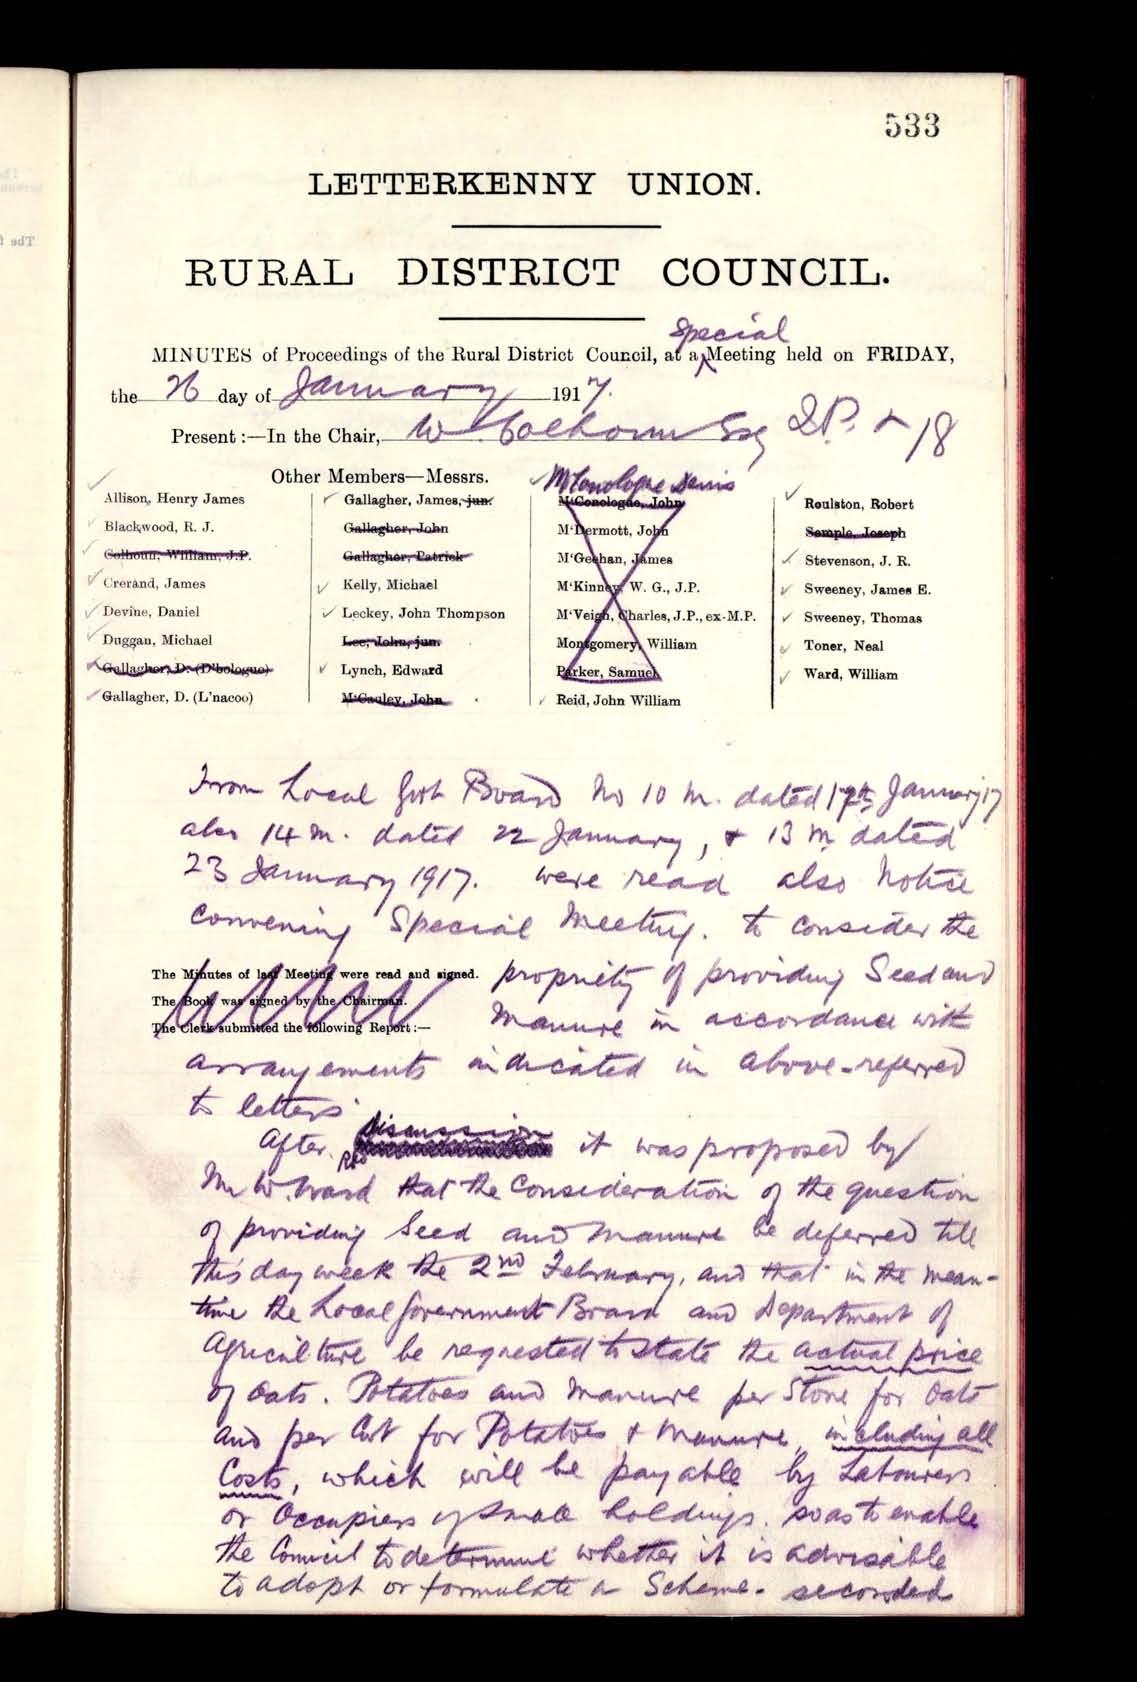 533
LETTERKENNY UNION.
RURAL DISTRICT COUNCIL.
special
MINUTES of Proceedings of the Rural District Council, at a Meeting held on FRIDAY,
the 26 day of January 1917.
Present :—In the Chair, W Colhoun Esq J.P. + 18
Other Members—Messrs.
Allison, Henry James
Blackwood, R. J.
Colhoun, William, J.P.
Crerand, James
Devine, Daniel
Duggan, Michael
Gallagher, D. (D'bologue)
Gallagher, D. (L'nacoo)
Gallagher, James, jun.
Gallagher, John
Gallagher, Patrick
Kelly, Michael
Leckey, John Thompson
Lee, John, jun.
Lynch, Edward
M'Cauley, John
McConologue Denis
M'Conologue, John
M'Dermott, John
M'Geehan, James
M'Kinney, W. G., J.P.
M'Veigh, Charles, J.P., ex-M.P.
Montgomery, William
Parker, Samuel
Reid, John William
Roulston, Robert
Semple, Joseph
Stevenson, J. R.
Sweeney, James E.
Sweeney, Thomas
Toner, Neal
Ward, William
From Local Govt Board No 10 M. dated 17th January 17
also 14 M. dated 22 January, + 13 M dated
23 January 1917. were read also Notice
convening Special Meeting. to consider the
The Minutes of last Meeting were read and signed.
The Book was signed by the Chairman.
The Clerk submitted the following Report :—
propriety of providing Seed and
Manure in accordance with
arrangements indicated in above-referred
to letters
After discussion it was proposed by
Mr W. Ward that the consideration of the question
of providing Seed and Manure be deferred till
this day week the 2nd February, and that in the mean-
time the Local Government Board and Department of
Agriculture be requested to state the actual price
of Oats. Potatoes and Manure per Stone for Oats
and per Cwt for Potatoes + Manure, including all
Costs, which will be payable by Labourers
or Occupiers of small holdings. so as to enable
the Council to determine whether it is advisable
to adopt or formulate a Scheme. seconded